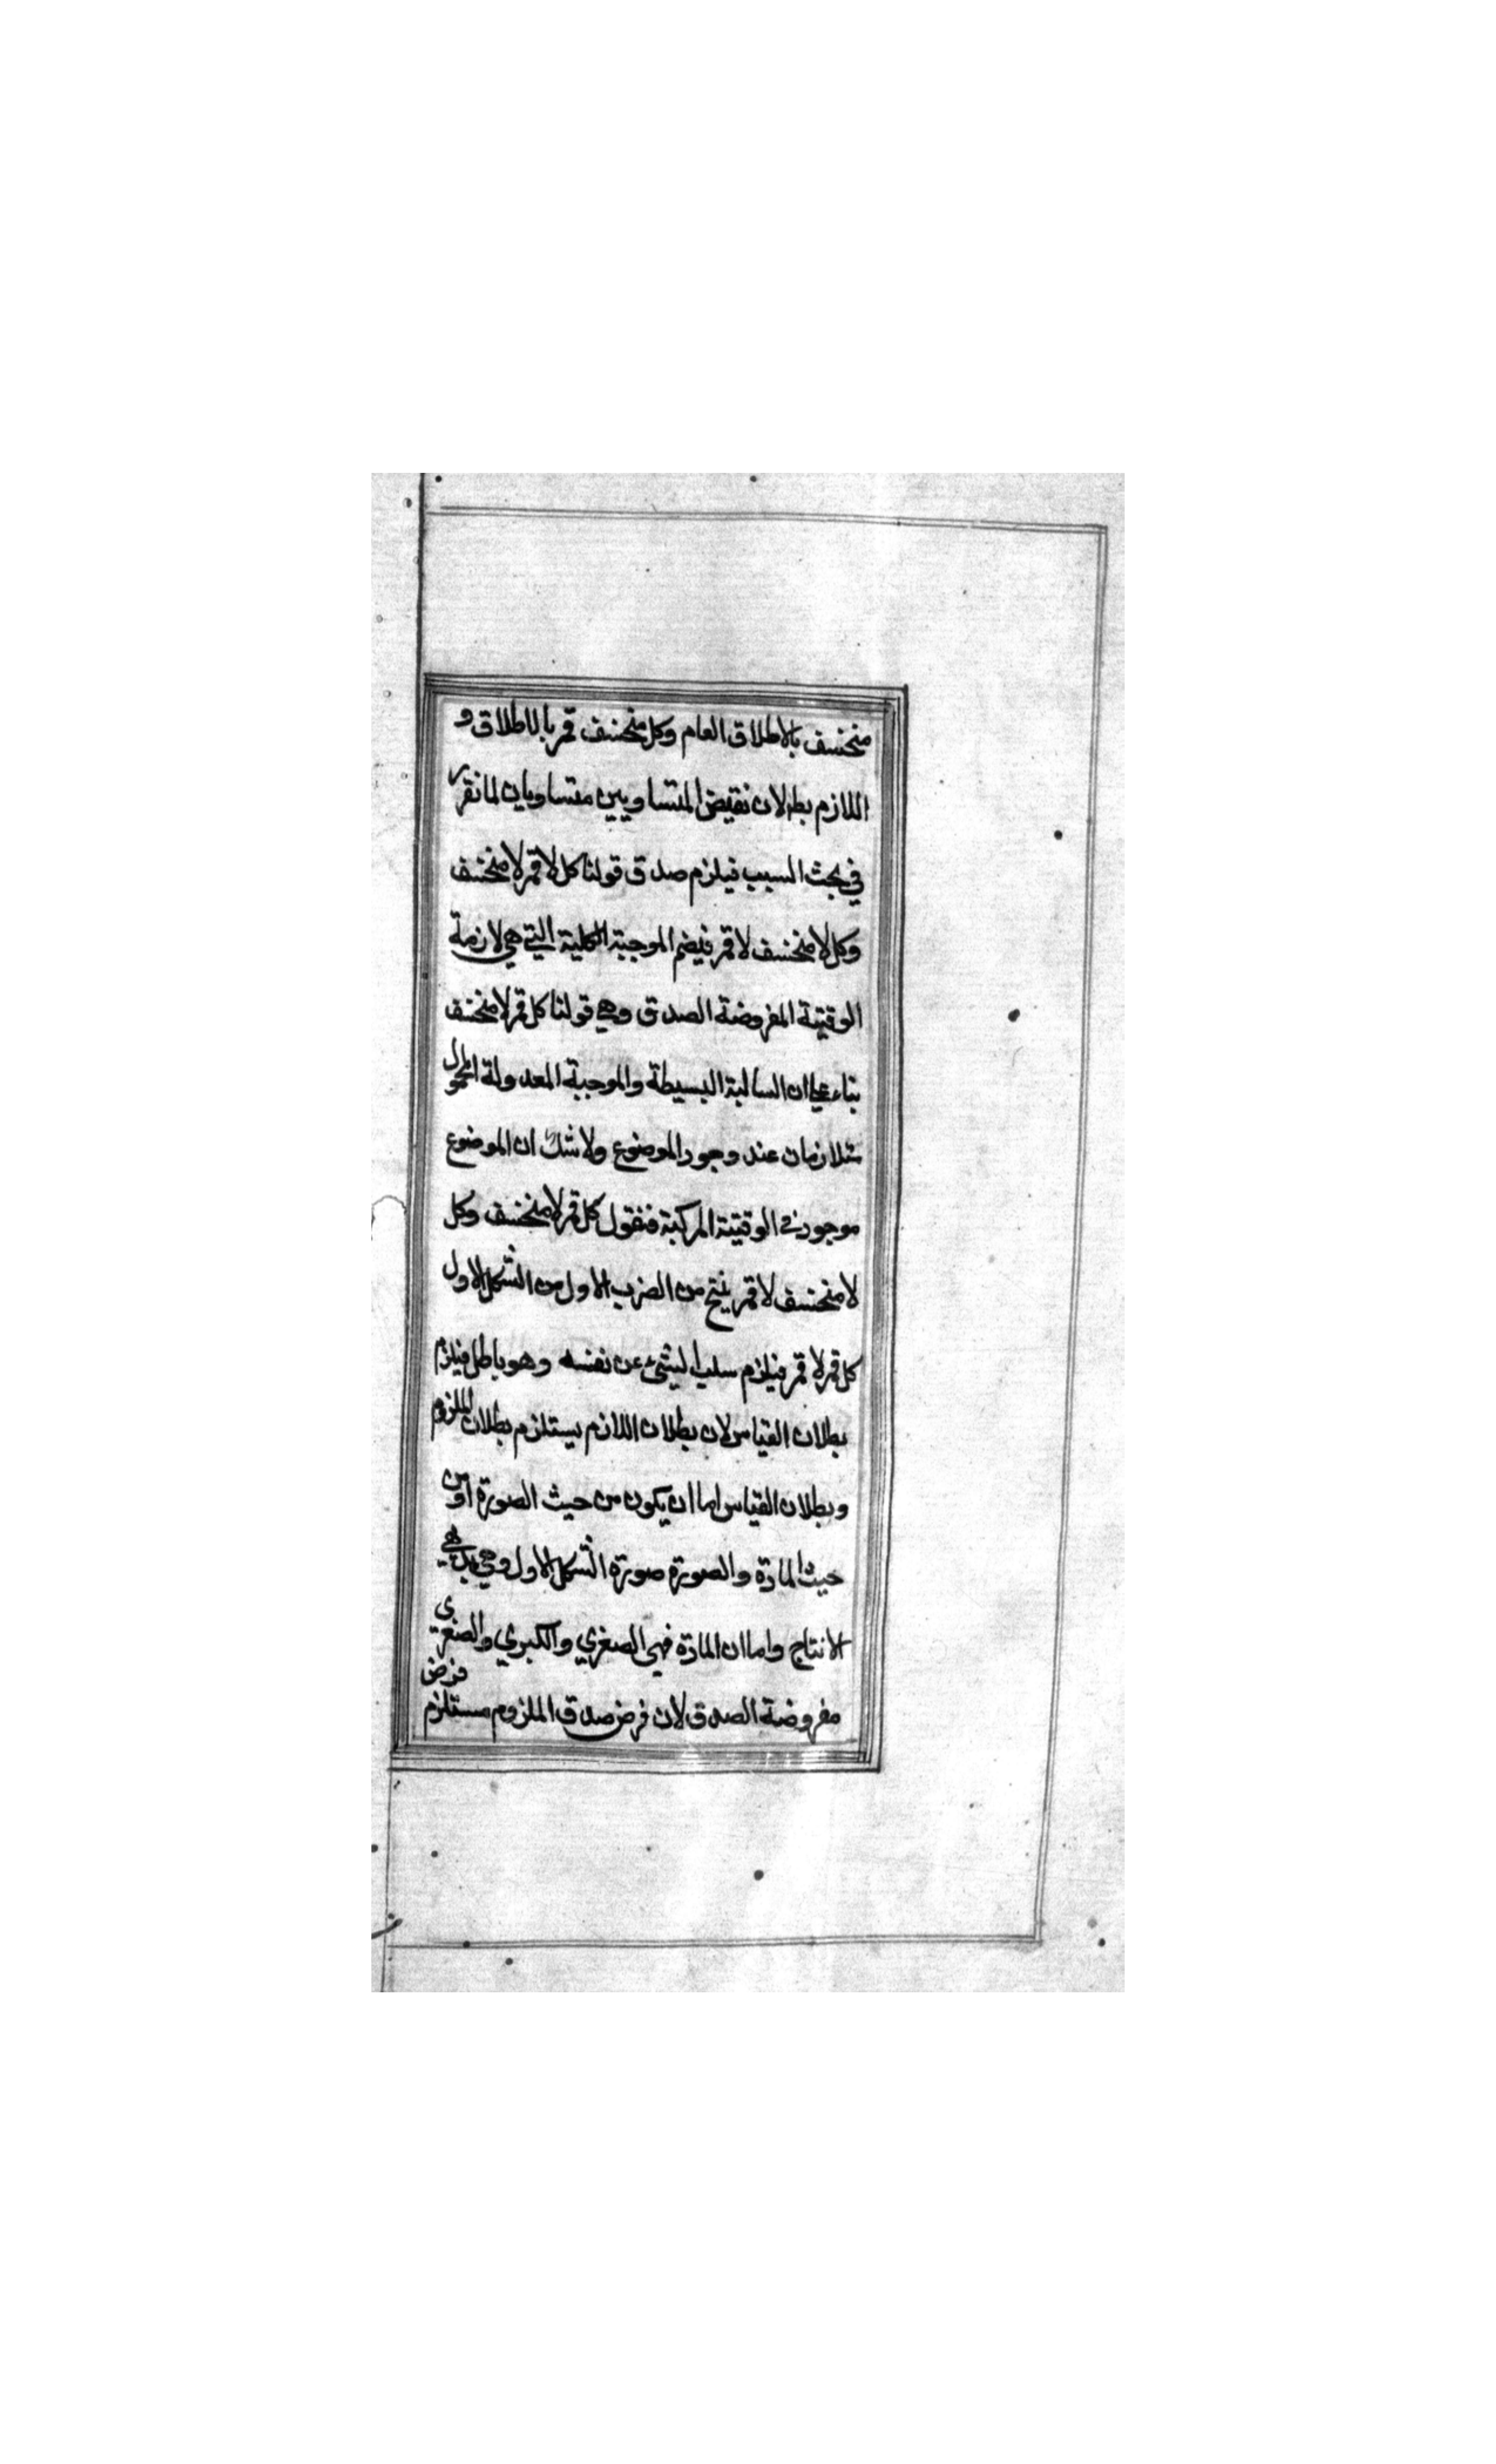 منخسف بالاطلاق العام وكل منخسف قمر بالاطلاق و
اللازم بط لان نقيض المتساويين متساويان لما تقرر
في بحث السبب فيلزم صدق قولنا كل لا قمر لا منخسف
وكل لا منخسف لا قمر نيضم الموجبة الكلية التي هي لازمة
الوقتية المفروضة الصدق وهي قولنا كل قمر لا منخسف
بناء علي ان السالبة البسيطة والموجبة المعدولة المحمول
متلازمان عند وجود الموضوع ولا شك ان الموضوع
موجود في الوقتية المركبة فنقول كل قمر لا منخسف وكل
لا منخسف لا قمر ينتج من الضرب الاول من الشكل الاول
كل قمر لا قمر فيلزم سلب الشئ عن نفسه وهو باطل فيلزم
بطلان القياس لان بطلان اللازم يستلزم بطلان الملزوم
وبطلان القياس اما ان يكون من حيث الصورة او من
حيث المادة والصورة صورة الشكل الاول وهي بديهي
الانتاج واما ان المادة فهي الصغري والكبري والصغرى
مفروضة الصدق لان فرض صدق الملزوم مستلزم فرض